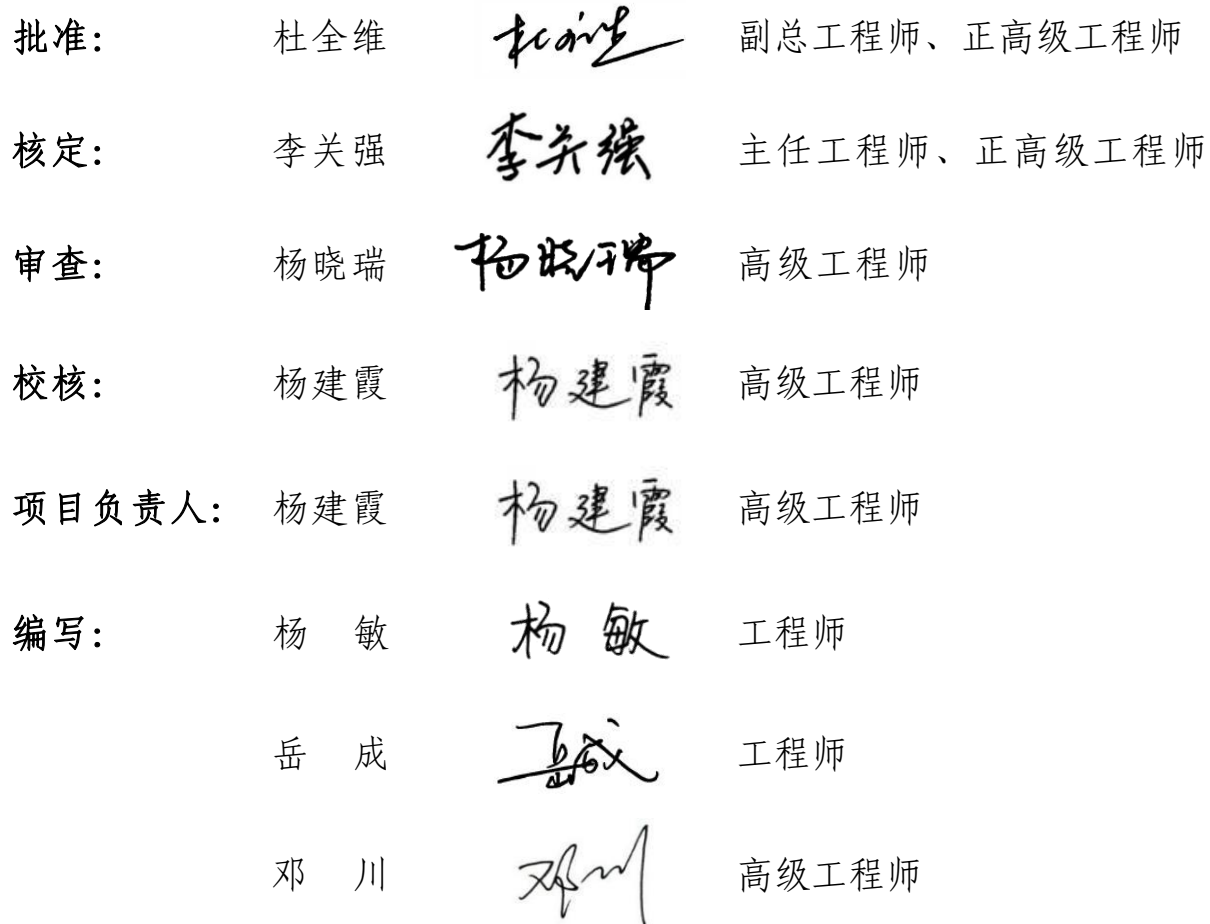 批准： 杜全维 杜全维 副总工程师、正高级工程师
核定： 李关强 李关强 主任工程师、正高级工程师
审查： 杨晓瑞 杨晓瑞 高级工程师
校核： 杨建霞 杨建霞 高级工程师
项目负责人： 杨建霞 杨建霞 高级工程师
编写： 杨 敏 杨 敏 工程师
岳 成 岳成 工程师
邓 川 邓川 高级工程师